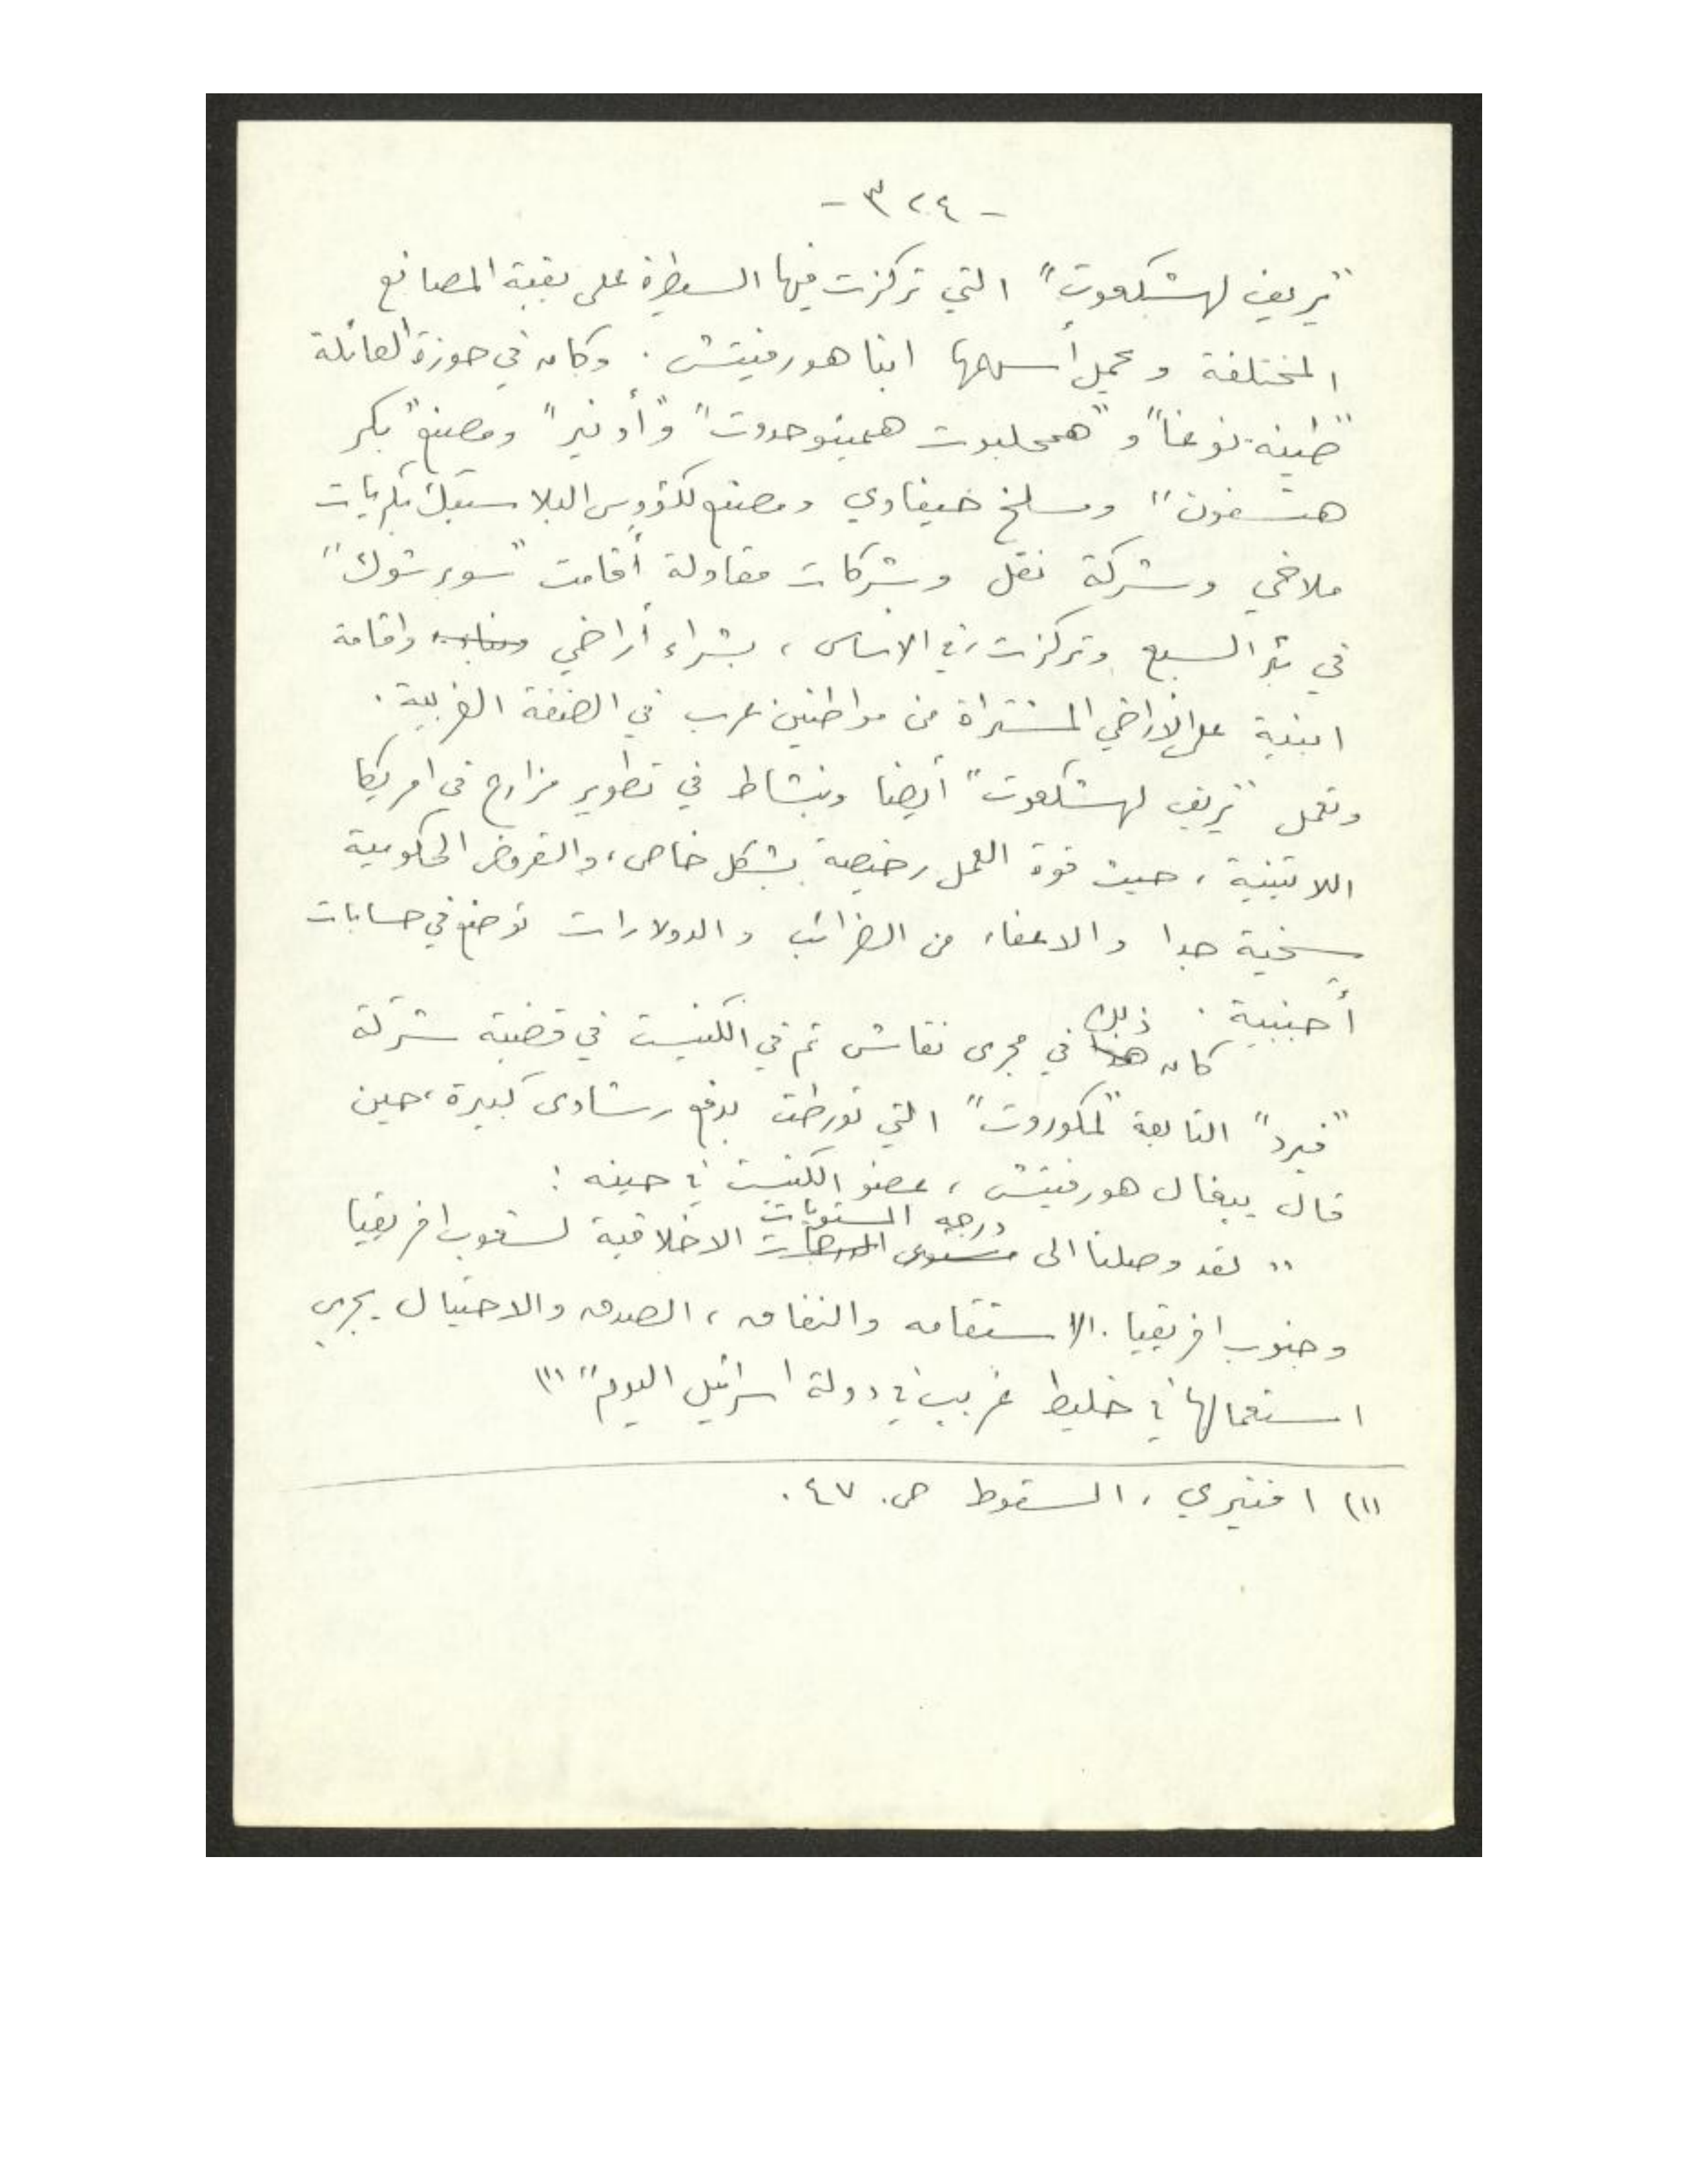 - ٣٢٤ -
"يريف لهشكعوت" التي تركزت فيها السيطرة على بقية المصانع
المختلفة وحمل أسهمها ابنا هورفيتش. وكان في حوزة العائلة
"طينه نوغا" و "همحلبوت همينوحدوت" و"أدنير" ومصنع "بكر
هتسفون" ومسلخ خيفاوي ومصنع لكؤوس البلاستيك بكريات
ملاخي وشركة نقل وشركات مقاولة أقامت "سوبر شوك"
في بئر السبع وتركزت، في الاساس، بشراء أراضي واقامة
ابنية على الاراضي المشتراة من مواطنين عرب في الضفة الغربية.
وتعمل "يريف لهشكعوت" أيضا وبنشاط في تطوير مزارع في امريكا
اللاتينية، حيث قوة العمل رخيصة بشكل خاص، والقروض الحكومية
سخية جدا والاعفاء من الضرائب والدولارات توضع في حسابات
أجنبية.
كان ذلك في مجرى نقاش تم في الكنيست في قضية شركة
"فيرد" التابعة "لمكوروت" التي تورطت بدفع رشاوى كبيرة، حين
قال ييغال هورفيتش، عضو الكنيست في حينه:
"لقد وصلنا الى درجه المستويات الاخلاقية لشعوب افريقيا
وجنوب افريقيا. الاستقامه والنفاق، الصدق والاحتيال يجري
استعمالها في خليط غريب في دولة اسرائيل اليوم" (١)
(١) افنيري، السقوط ص. ٤٧.